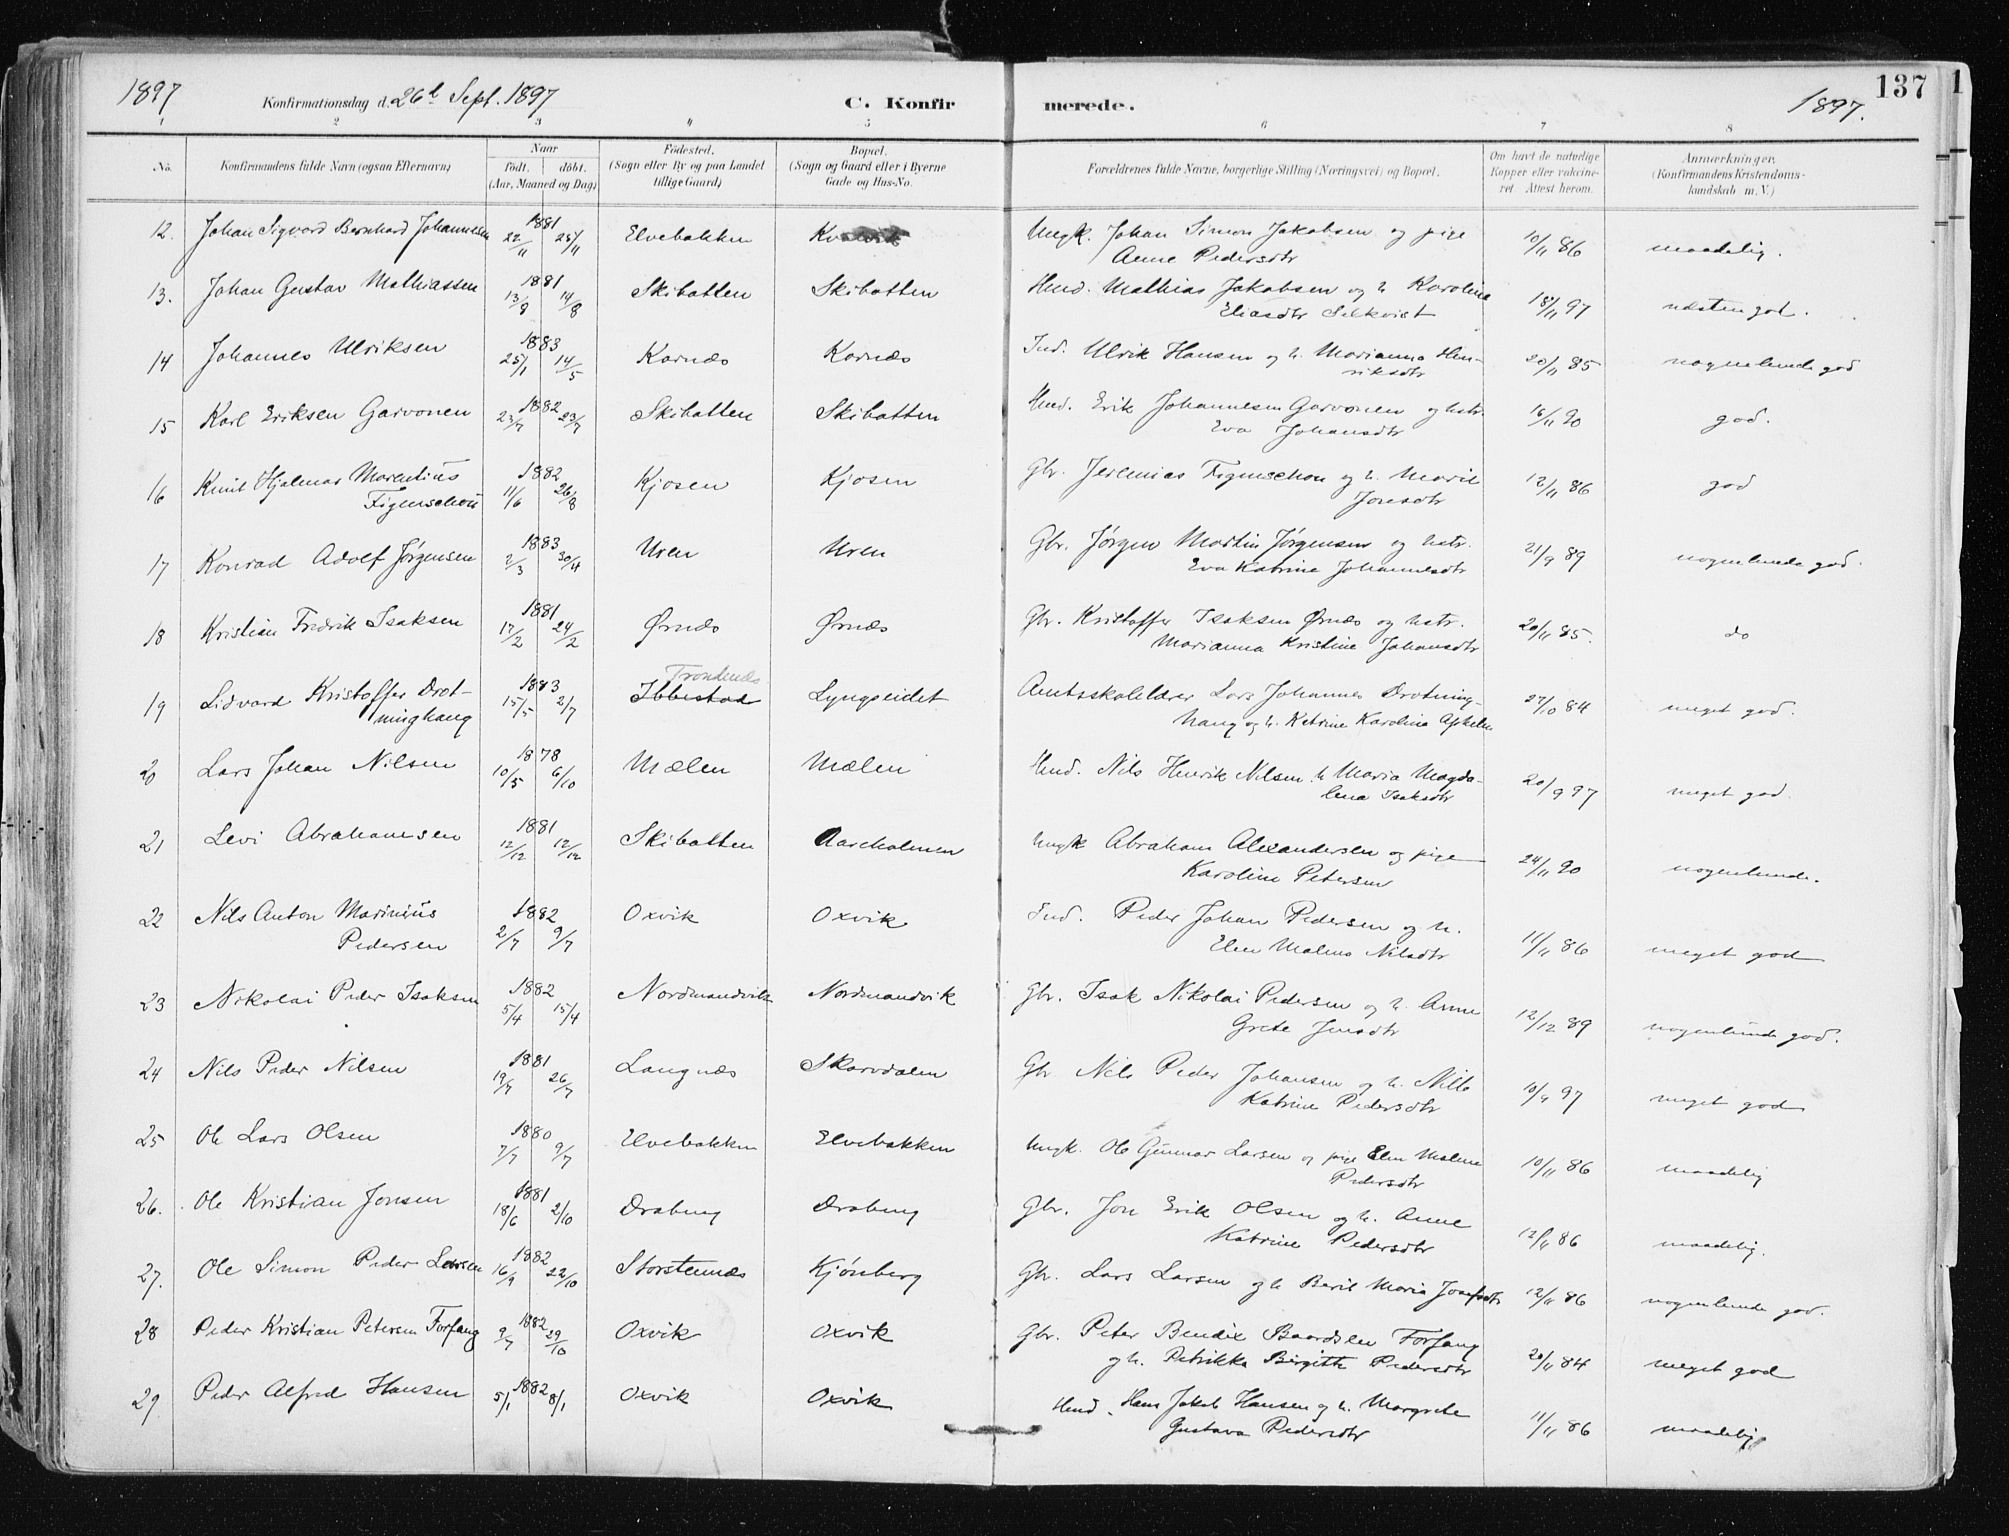 1897 Konfirmationsdag d. 26de Sept. 1897 C. Konfirmerede. 1897. 137
1 2 3 4 5 6 7 8
No. Konfirmandens fulde Navn (ogsaa Efternavn) Naar født. døbt. (Aar, Maaned og Dag) Fødested. (Sogn eller By og paa Landet tillige Gaard) Bopæl. (Sogn og Gaard eller i Byerne Gade og Hus-No. Forældrenes fulde Navne, borgerlige Stilling (Næringsvei) og Bopæl. Om havt de naturlige Kopper eller vaccineret Attest herom. Anmærkninger. (Konfirmandens Kristendomskundskab m. V.)
12. Johan Sigvard Bernhard Johannesen 1881 22/11 25/11 Elvebakken Ungk. Johan Simon Jakobsen og pige 10/11 86 maadelig.
Anne Pedersdtr
13. Johan Gustav Mathiassen 1881 13/8 14/8 Skibotten Skibotten Husd. Mathias Jakobsen og h. Karoline 18/11 97 næsten god.
Eliasdtr Selkvist
14 Johannes Ulriksen 1883 25/1 14/5 Kornæs Kornæs Ind. Ulrik Hansen og h. Marianna Hen- 20/11 85 nogenlunde god
riksdtr
15 Karl Eriksen Garvonen 1882 23/7 23/7 Skibotten Skibotten Husd. Erik Johannesen Garvonen og hstr. 16/11 90 god.
Eva Johansdtr
16 Knut Hjalmar Morentius 1882 11/6 26/8 Kjosen Kjosen Gbr. Jeremias Figenschou og h. Marit 12/11 86 god
Figenschou Jonsdtr
17 Konrad Adolf Jørgensen 1883 2/3 30/4 Uren Uren Gbr. Jørgen Martin Jørgensen og hstr. 21/9 89 nogenlunde god.
Eva Katrine Johannesdtr
18 Kristian Fredrik Isaksen 1881 17/2 24/2 Ørnæs Ørnæs Gbr. Kristoffer Isaksen Ørnæs og hstr. 20/11 85. do
Marianna Kristine Johansdtr
19 Lidvard Kristoffer Drot- 1883 15/5 2/7 Trondenæs Ibbestad Lyngseidet Amtsskolelærer Lars Johannes Drotning- 27/10 84 meget god.
ninghaug haug og h. Katrine Karoline
20 Lars Johan Nilsen 1878 10/5 6/10 Mælen Mælen Husd. Nils Henrik Nilsen h Maria Magda- 20/9 97 meget god.
lena Isaksdtr
21 Levi Abrahamsen 1881 12/12 12/12 Skibotten Aarcholmen Ungk Abraham Alexandersen og pige 24/11 90 nogenlunde.
Karoline Petersen
22 Nils Anton Marinius 1882 2/7 9/7 Oxvik Oxvik Ind. Peder Johan Pedersen og h. 11/11 86 meget god
Pedersen Elen Malene Nilsdtr
23 Nikolai Peder Isaksen 1882 5/4 15/4 Nordmandvik Nordmandvik Gbr. Isak Nikolai Pedersen og h. Anne 12/12 89 nogenlunde god.
Grete Jensdtr
24 Nils Peder Nilsen 1881 19/7 26/7 Langnæs Skarvdalen Gbr Nils Peder Johansen og h. Nille 97 meget god
Katrine Pedersdtr
25 Ole Lars Olsen 1880 7/7 9/7 Elvebakken Elvebakken Ungk. Ole Gunnar Larsen og pige Elen Malene 10/11 86 maadelig
Pedersdtr
26. Ole Kristian Jonsen 1881 18/6 2/10 Drabeng Drabeng Gbr. Jon Erik Olsen og h. Anne 12/11 86 maadelig.
Katrine Pedersdtr
27. Ole Simon Peder Larsen 1882 16/9 22/10 Storstennæs Kjønberg Gbr. Lars Larsen og h Berit Maria Josefsdtr 12/11 86 nogenlunde god.
28 Peder Kristian Petersen Forfang 1882 9/7 29/10 Oxvik Oxvik Gbr. Peter Bendix Baardsen Forfang 20/11 84 meget god
og h. Petrikke Birgitte Pedersdtr
29 Peder Alfred Hansen 1882 5/1 8/1 Oxvik Oxvik Husd. Hans Jakob Hansen og h. Margrete 11/11 86 maadelig
Gustava Pedersdtr